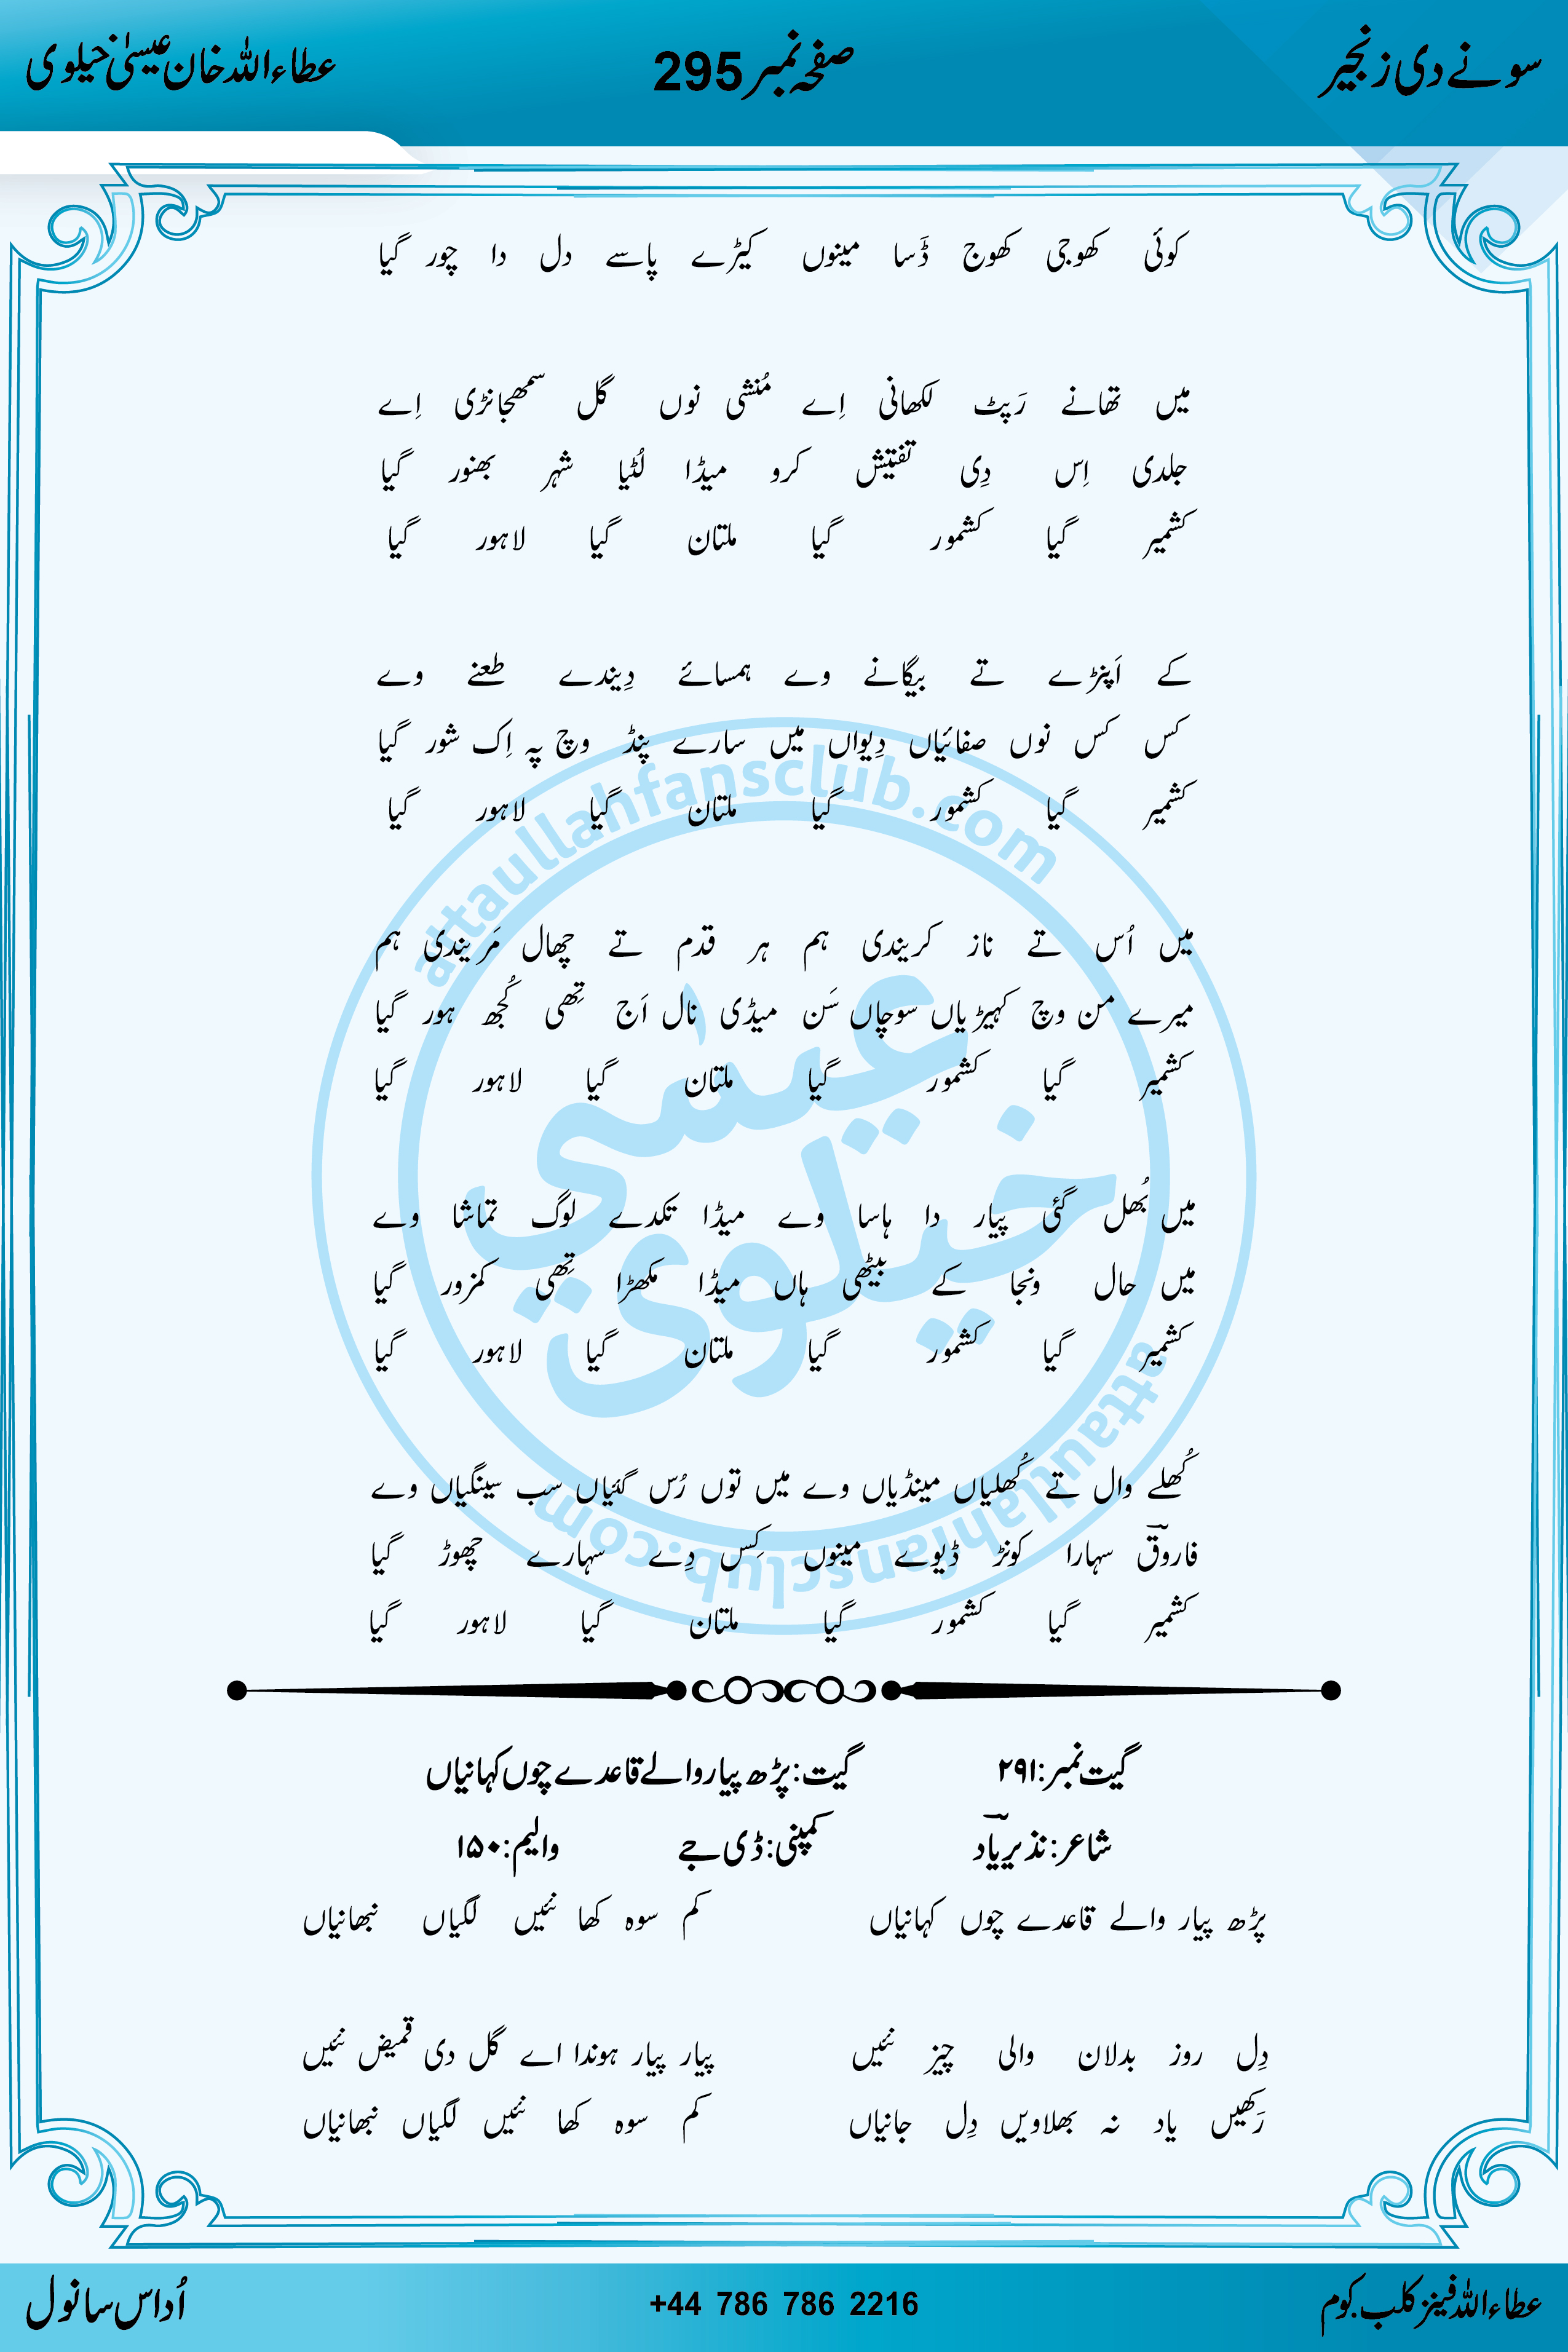 سونے دی زنجیر صفحہ نمبر 295 عطاءاللہ خان عیسیٰ خیلوی
کوئی کھوجی کھوج ڈَسا مینوں کیڑے پاسے دل دا چور گیا
میں تھانے رَپٹ لکھانی اِے مُنشی نوں گل سمھجانڑی اِے
جلدی اِس دِی تفتیش کرو میڈا لُٹیا شہر بھنور گیا
کشمیر گیا کشمور گیا ملتان گیا لاہور گیا
کے اَپنڑے تے بیگانے وے ہمسائے دِیندے طعنے وے
کس کس نوں صفائیاں دِیواں میں سارے پنڈ وچ پہ اِک شور گیا
کشمیر گیا کشمور گیا ملتان گیا لاہور گیا
میں اُس تے ناز کریندی ہم ہر قدم تے چھال مَریندی ہم
میرے من وچ کہیڑیاں سوچاں سَن میڈی نال اَج تِھی کُجھ ہور گیا
کشمیر گیا کشمور گیا ملتان گیا لاہور گیا
میں بُھل گئی پیار دا ہاسا وے میڈا تکدے لوگ تماشا وے
میں حال ونجا کے بیٹھی ہاں میڈا مکھڑا تِھی کمزور گیا
کشمیر گیا کشمور گیا ملتان گیا لاہور گیا
کُھلے وال تے کُھلیاں مینڈیاں وے میں توں رُس گئیاں سب سینگیاں وے
فاروقؔ سہارا کونڑ ڈیوے مینوں کِس دِے سہارے چھوڑ گیا
کشمیر گیا کشمور گیا ملتان گیا لاہور گیا
گیت نمبر:۲۹۱ گیت: پڑھ پیار والے قاعدے چوں کہانیاں
شاعر: نذیر یادؔ کمپنی: ڈی جے والیم: ۱۵۰
پڑھ پیار والے قاعدے چوں کہانیاں کم سوہ کھا نئیں لگیاں نبھانیاں
دِل روز بدلان والی چیز نئیں پیار پیار ہوندا اے گل دی قمیض نئیں
رَکھیں یاد نہ بھلاویں دِل جانیاں کم سوہ کھا نئیں لگیاں نبھانیاں
عطاءاللہ فینز کلب.کوم +44 786 786 2216 اُداس سانول
attaullahfansclub.com
عیسٰی
خیلوی
attaullahfansclub.com